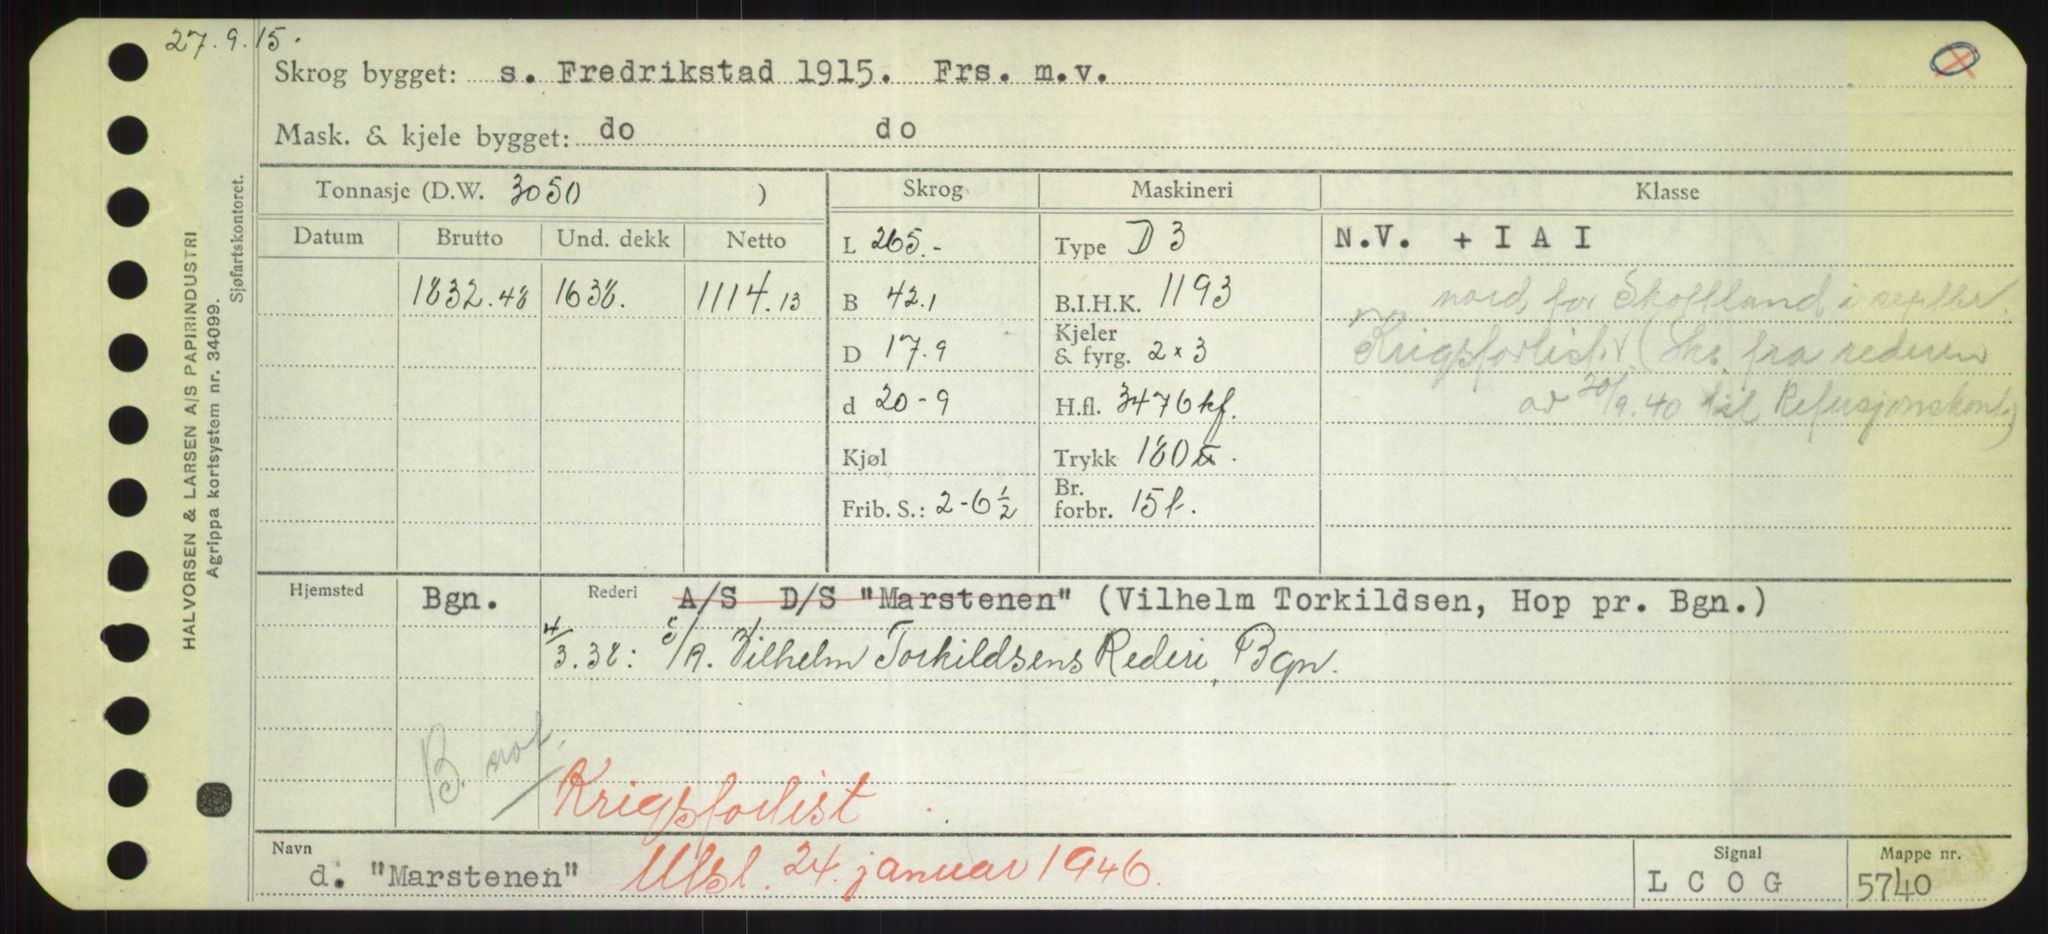 27.9.15.
Skrog bygget: s. Fredrikstad 1915. Frs. m.v.
Mask. & kjele bygget: do do
HALVORSEN & LARSEN A/S PAPIRINDUSTRI
Agrippa kortsystem nr. 34099.
Sjøfartskontoret.
Tonnasje (D.W. 3050 ) Skrog Maskineri Klasse
Datum Brutto Und. dekk Netto L 265.- Type D 3 N.V. + I A I
1832.48 1638. 1114.13 B 42.1 B.I.H.K. 1193 nord for Skottland i septbr.
D 17.9 Kjeler & fyrg. 2 x 3 Krigsforlist. (Skr. fra rederen
d 20-9 H.fl. 3476 kf. av 30/9.40 til Refusjonskont.)
Kjøl Trykk 180
Frib. S.: 2-6 1/2 Br. forbr. 15 t.
Hjemsted Bgn. Rederi A/S D/S "Marstenen" (Vilhelm Torkildsen, Hop pr. Bgn.)
4/3.38: S/A. Vilhelm Torkildsens Rederi, Bgn.
B. not.
Krigsforlist
Navn d. "Marstenen" Utsl. 24. januar 1946. Signal L C O G Mappe nr. 5740